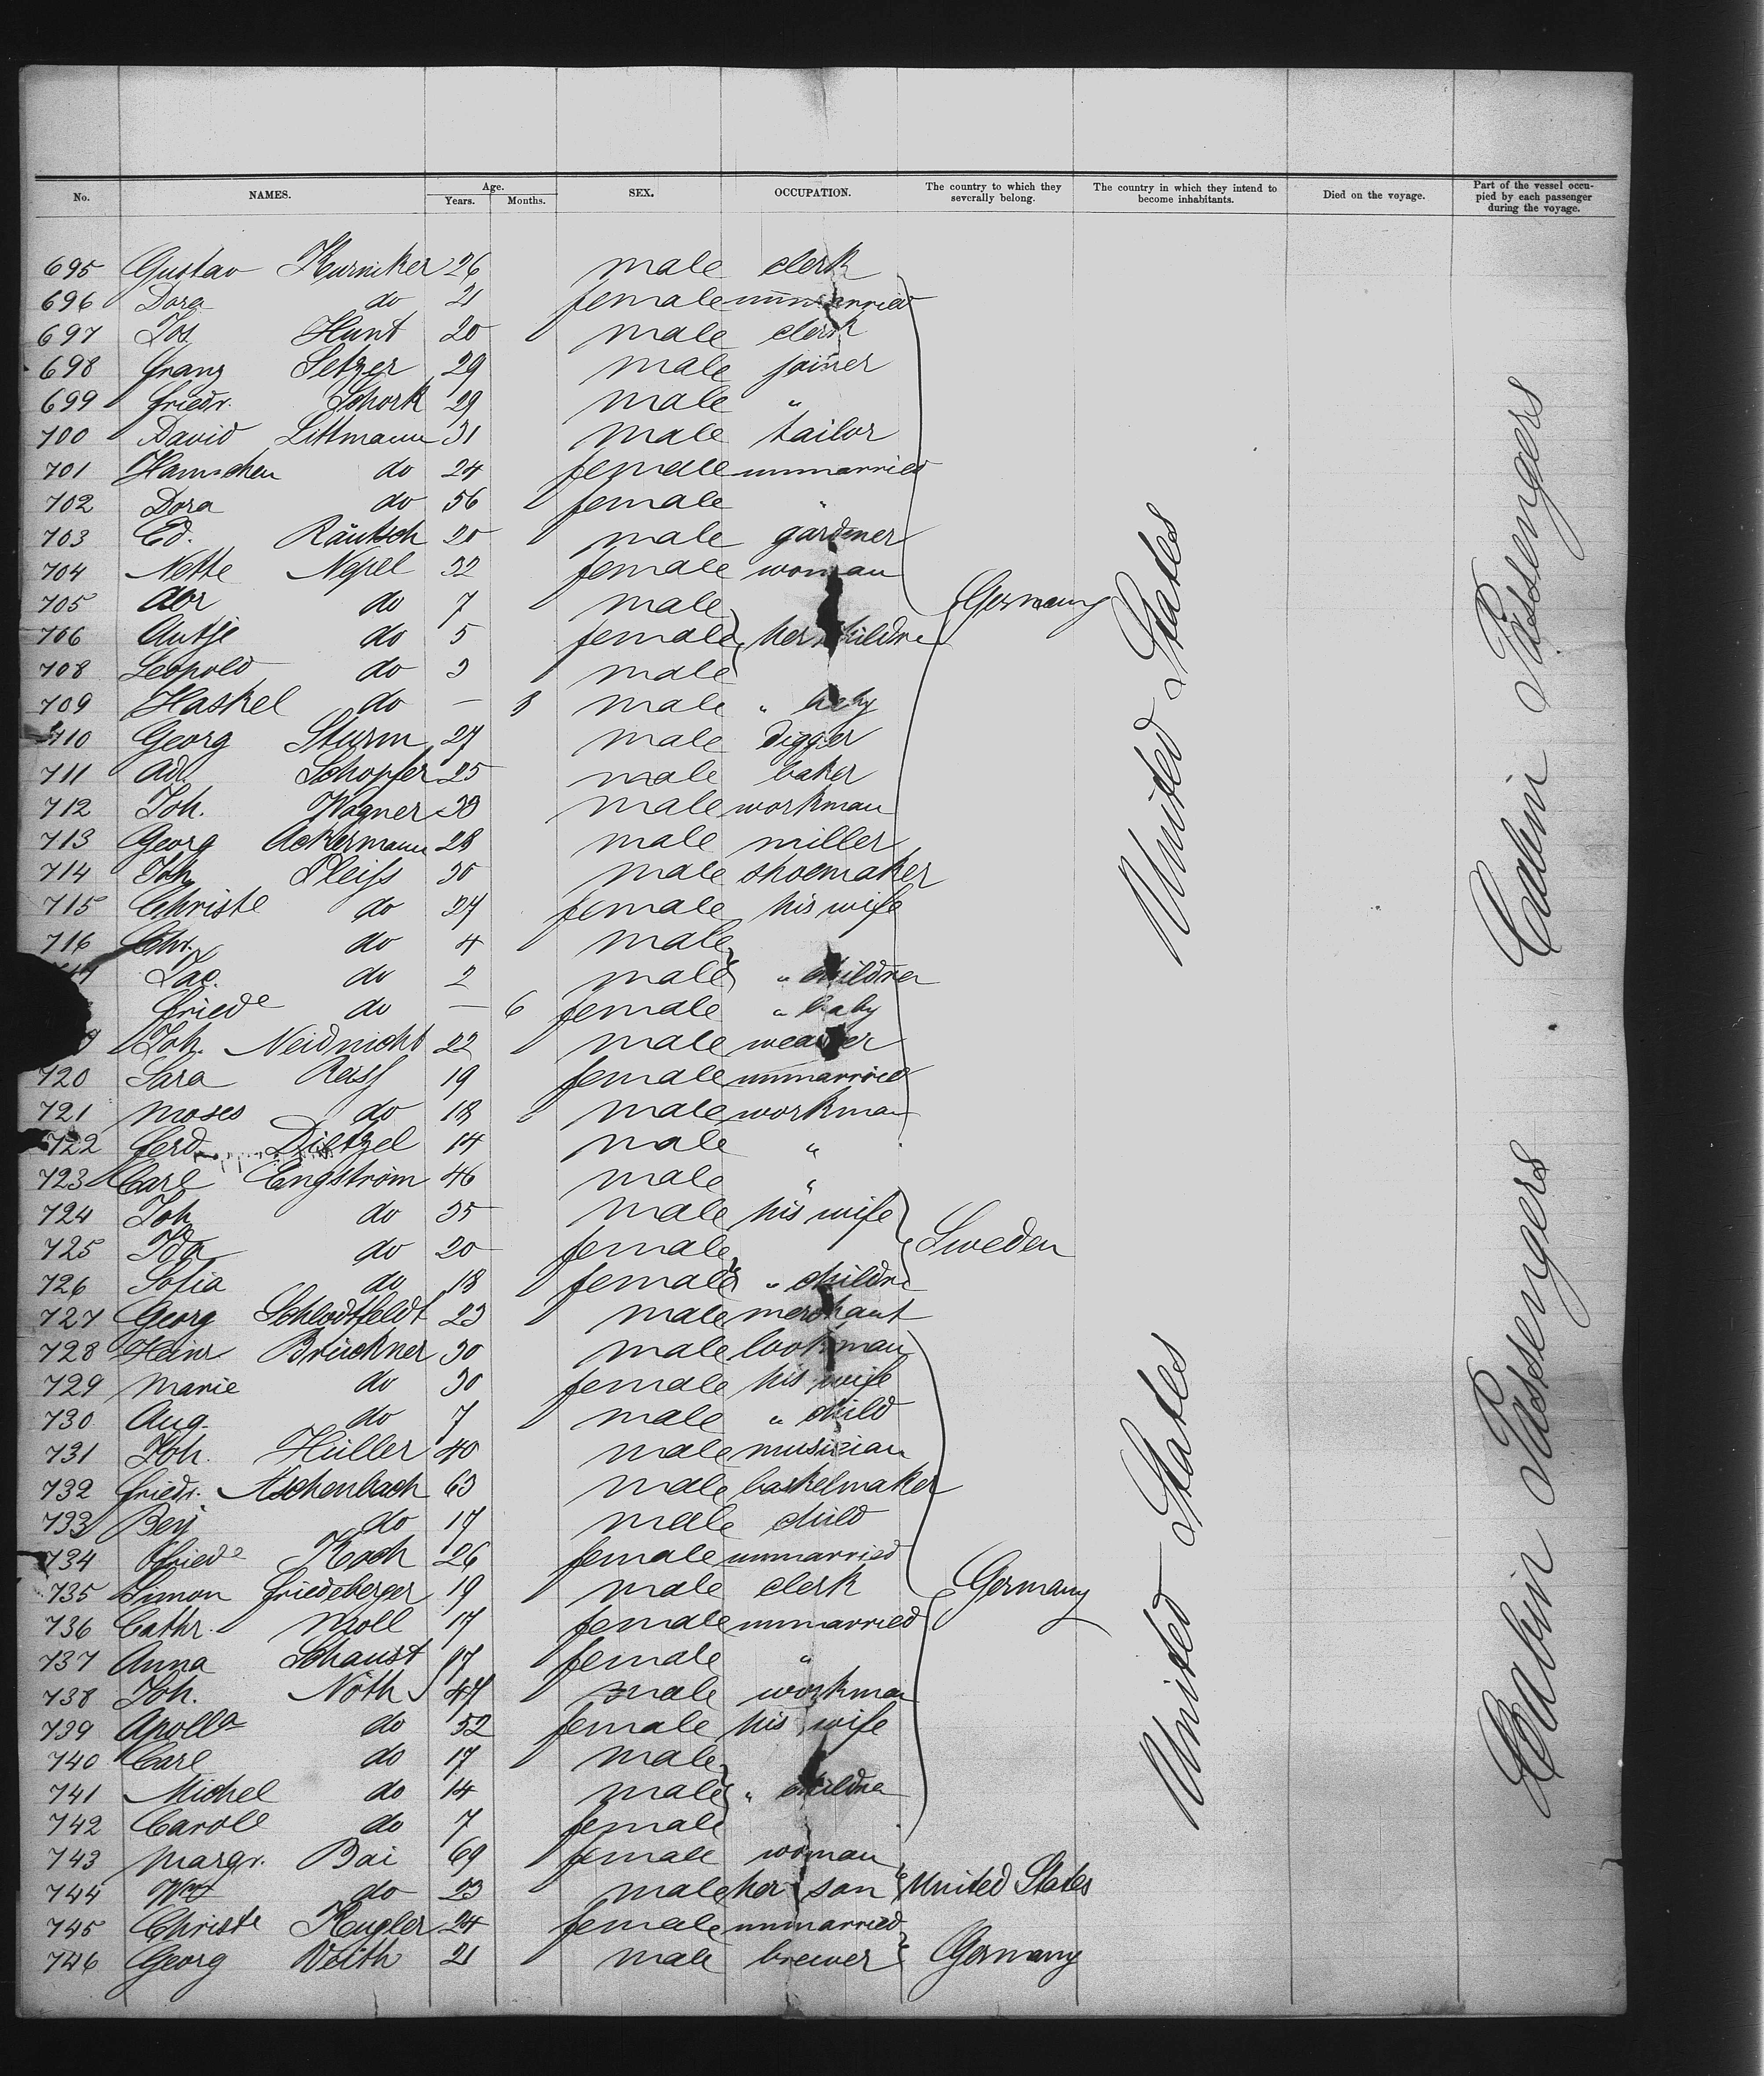 No. NAMES. Age. Years. Months. SEX. OCCUPATION. The country to which they severally belong. The country in which they intend to become inhabitants. Died on the voyage. Part of the vessel occupied by each passenger during the voyage.
695 Gustav Kurniker 26 male clerk
696 Dora do 21 female unmarried
697 Jos. Hunt 20 male clerk
698 Franz Setzer 29 male joiner
699 Friedr. Schork 29 male "
700 David Littmann 31 male tailor
701 Hannchen do 24 female unmarried
702 Dora do 56 female "
703 Ed. Räutsch 20 male gardener
704 Nette Nepel 32 female woman
705 do 7 male Germany
706 Antje do 5 female her children
708 Leopold do 3 male
709 Haskel do — 8 male " baby
710 Georg Sturm 27 male digger
711 Ad. Schopfer 25 male baker
712 Joh. Wagner 33 male workman
713 Georg Ackermann 28 male miller
714 Joh. Pleiss 30 male shoemaker
715 Christe do 27 female his wife
716 Chr. do 4 male
Jac. do 2 male " children
Friede do — 6 female " baby
Joh. Neidnicht 22 male weaver
720 Sara Reiss 19 female unmarried
721 Moses do 18 male workman
722 Ferd. Dietzel 14 male "
723 Carl Engström 46 male "
724 Joh do 35 male his wife
725 Ida do 20 female Sweden
726 Sofia do 18 female " childre
727 Georg Schlodtfeldt 23 male merchant
728 Heinr Brückner 30 male
729 Marie do 30 female his wife
730 Aug. do 7 male " child
731 Joh. Hüller 40 male musician
732 Friedr. Aschenbach 63 male basketmaker
733 Benj do 17 male child
734 Friede Koch 26 female unmarried
735 Simon Friedeberger 19 male clerk Germany
736 Cathr. Moll 17 female unmarried
737 Anna Schaust 17 female "
738 Joh. Nöth 47 male workman
739 Apolla do 52 female his wife
740 Carl do 17 male
741 Michel do 14 male " childre
742 Carole do 7 female
743 Margr. Bai 69 female woman
744 Wm do 23 male her son United States
745 Christe Kugler 24 female unmarried
746 Georg Veith 21 male brewer Germany
United States
United States
Cabin Passengers
Cabin Passengers